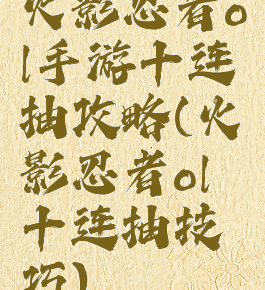 火影忍者o
l手游十连
抽攻略(火
影忍者ol
十连抽技
巧)